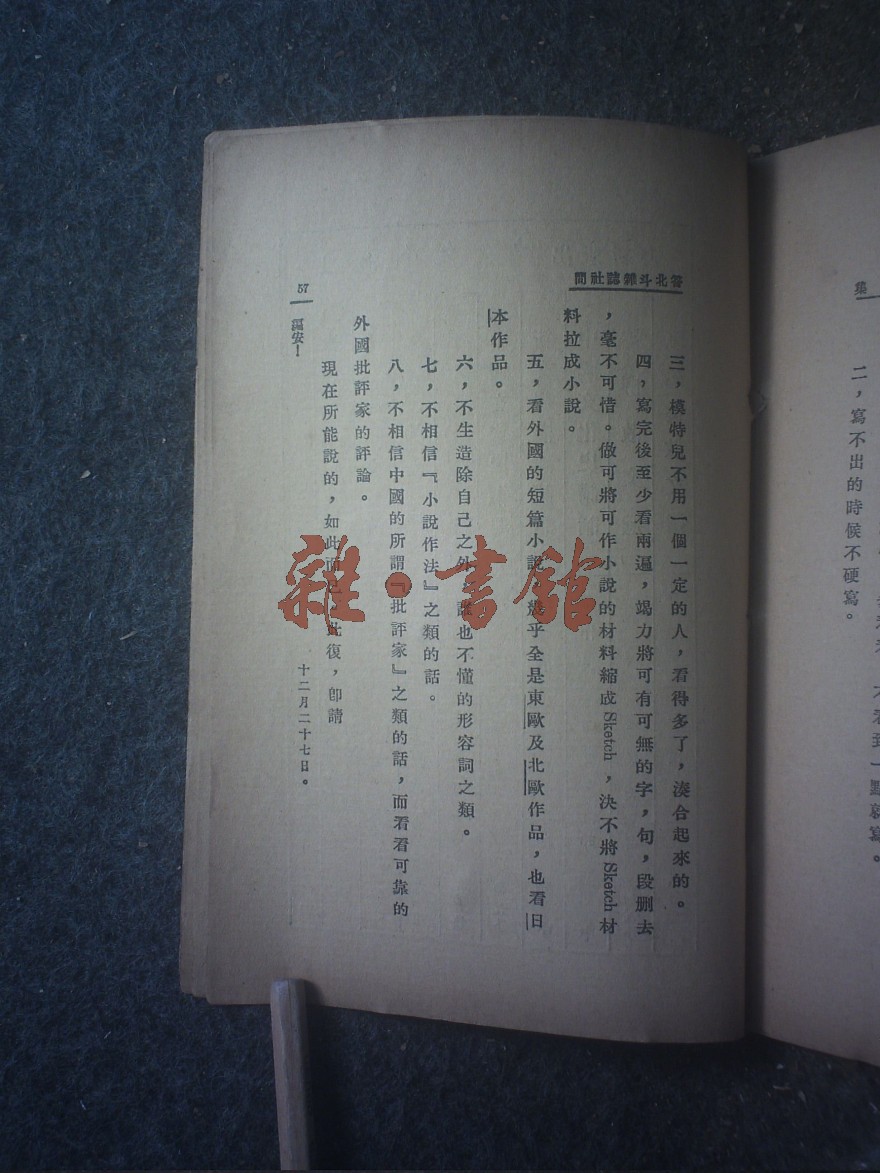 集
二，寫不出的時候不硬寫。
答北斗雜誌社問
三，模特兒不用一個一定的人，看得多了，湊合起來的。
四，寫完後至少看兩遍，竭力將可有可無的字，句，段刪去
，毫不可惜。做可將可作小說的材料縮成Sketch，決不將Sketch材
料拉成小說。
五，看外國的短篇小說，幾乎全是東歐及北歐作品，也看日
本作品。
六，不生造除自己之外，誰也不懂的形容詞之類。
七，不相信『小說作法』之類的話。
八，不相信中國的所謂『批評家』之類的話，而看看可靠的
外國批評家的評論。
現在所能說的，如此而 此復，卽請
安！
十二月二十七日。
57
雜·書館